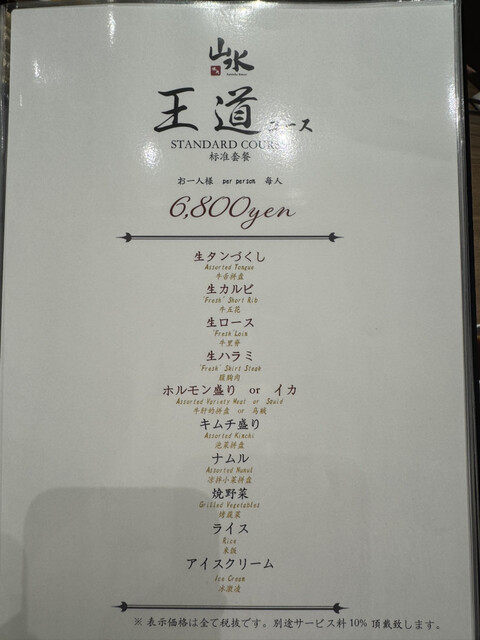 山水
王道コース
STANDARD COUR
标准套餐
お一人様 per person 每人
6,800yen
生タンづくし
Assorted Tongue
牛舌拼盘
生カルビ
"Fresh" Short Rib
牛五花
生ロース
"Fresh"Loin
牛里脊
生ハラミ
"Fresh" Skirt Steak
腹胸肉
ホルモン盛り or イカ
Assorted Variety Meat or Squid
牛肝的拼盘 or 乌贼
キムチ盛り
Assorted Kimchi
泡菜拼盘
ナムル
Assorted Namul
凉拌小菜拼盘
焼野菜
Grilled Vegetables
烤蔬菜
ライス
Rice
米饭
アイスクリーム
Ice Cream
冰激凌
※ 表示価格は全て税抜です。別途サービス料10% 頂戴致します。